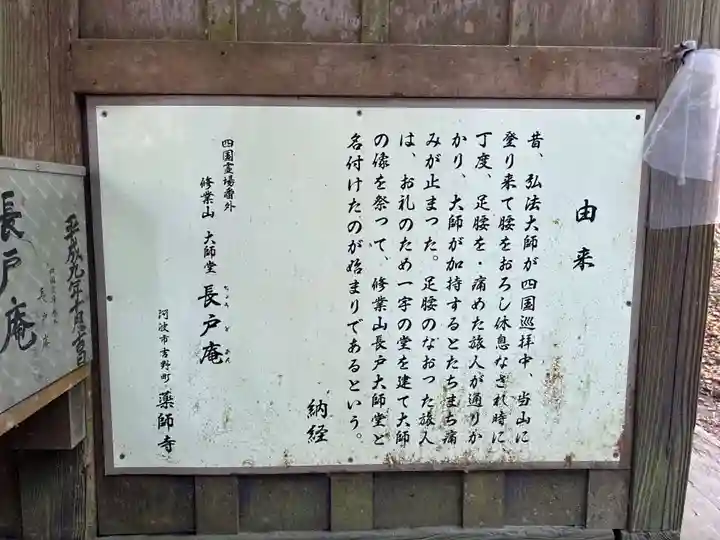 由来
昔、弘法大師が四国巡拝中、当山に
登り来て腰をおろし休息なされ時に
丁度、足腰を・痛めた旅人が通りか
かり、大師が加持するとたちまち痛
みが止まつた。足腰のなおつた旅人
は、お礼のため一宇の堂を建て大師
の像を祭つて、修業山長戸大師堂と
名付けたのが始まりであるという。
納経
四国霊場番外
修業山 大師堂 長戸庵
ちょうどあん
阿波市吉野町 薬師寺
平成九年十月吉日
長戸庵
長戸庵